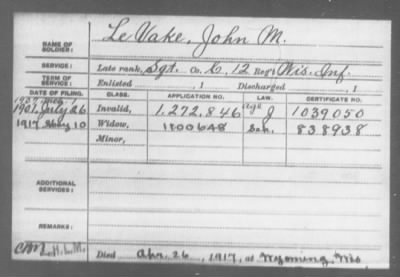 NAME OF SOLDIER: Le Vake, John M.
SERVICE: Late rank, Sgt. Co. K, 12 Reg't Wis. Inf.
TERM OF SERVICE: Enlisted , 1 Discharged , 1
DATE OF FILING. CLASS. APPLICATION NO. LAW. CERTIFICATE NO.
1901 July 26 Invalid, 1,272,846 J 1039050
1917 May 10 Widow, 1100648 838938
Minor,
ADDITIONAL SERVICES:
REMARKS:
Died Apr. 26, 1917, at Wyoming